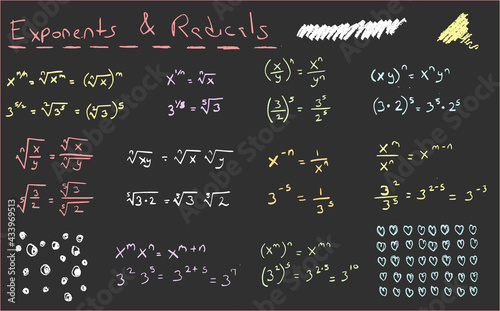 Exponents & Radicals
x^(n/m) = ⁿ√(x^m) = (ⁿ√x)^m
3^(5/2) = ²√(3^5) = (²√3)^5
x^(1/n) = ⁿ√x
3^(1/5) = ⁵√3
(x/y)^n = x^n/y^n
(3/2)^5 = 3^5/2^5
(xy)^n = x^n y^n
(3·2)^5 = 3^5·2^5
ⁿ√(x/y) = ⁿ√x/ⁿ√y
⁵√(3/2) = ⁵√3/⁵√2
ⁿ√(xy) = ⁿ√x ⁿ√y
⁵√(3·2) = ⁵√3 ⁵√2
x^(-n) = 1/x^n
3^(-5) = 1/3^5
x^n/x^n = x^(m-n)
3^2/3^5 = 3^(2-5) = 3^(-3)
x^m x^n = x^(m+n)
3^2 3^5 = 3^(2+5) = 3^7
(x^m)^n = x^(mn)
(3^2)^5 = 3^(2·5) = 3^10
Adobe Stock | #433969513